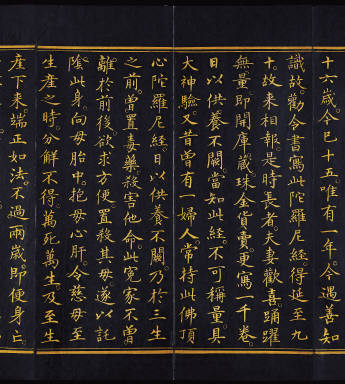 十六歲今已十五唯有一年今遇善知
識故勸令書寫此陀羅尼經得延至九
十故來相報是時長者夫妻歡喜踊躍
無量即開庫藏珠金貨賣更寫一千卷
日以供養不闕當知此經不可稱量具
大神驗又昔曾有一婦人常持此佛頂
心陀羅尼經日以供養不闕乃於三生
之前曾置毒藥殺害他命此冤家不曾
離於前後欲求方便置殺其母遂以託
陰此身向母胎中抱母心肝令慈母至
生產之時分解不得萬死萬生及至生
產下來端正如法不過兩歲即便身亡